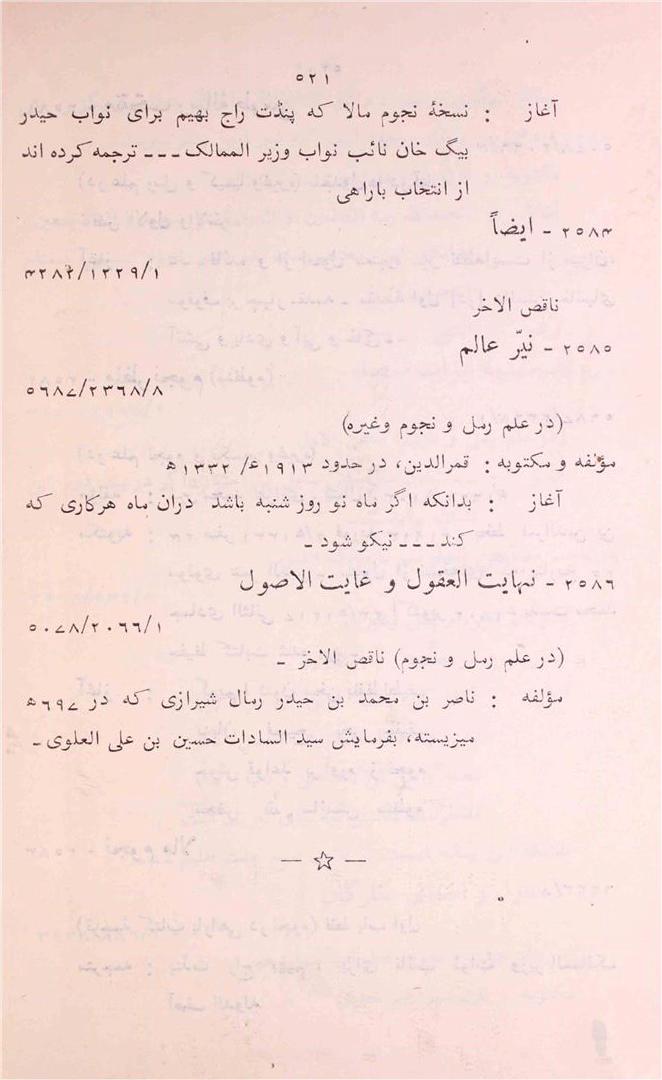 ۵۲۱
آغاز : نسخهٔ نجوم مالا که پنڈت راج بهیم برای نواب حیدر
بیگ خان نائب نواب وزیر الممالک ـ ـ ـ ترجمه کرده اند
از انتخاب باراهی
۲۵۸۴ - ایضاً
۴۲۸۲/۱۲۲۹/۱
ناقص الاخر
۲۵۸۵ - نیّر عالم
۵۶۸۷/۲۳۶۸/۸
(در علم رمل و نجوم وغیره)
مؤلفه و مکتوبه : قمرالدین، در حدود ۱۹۱۳ء/ ۱۳۳۲ھ
آغاز : بدانکه اگر ماه نو روز شنبه باشد دران ماه هرکاری که
کند ـ ـ ـ نیکو شود ـ
۲۵۸۶ - نهایت العقول و غایت الاصول
۵۰۷۸/۲۰۶۶/۱
(در علم رمل و نجوم) ناقص الاخر ـ
مؤلفه : ناصر بن محمد بن حیدر رمال شیرازی که در ۶۹۷ھ
میزیسته، بفرمایش سید السادات حسین بن علی العلوی ـ
— ☆ —